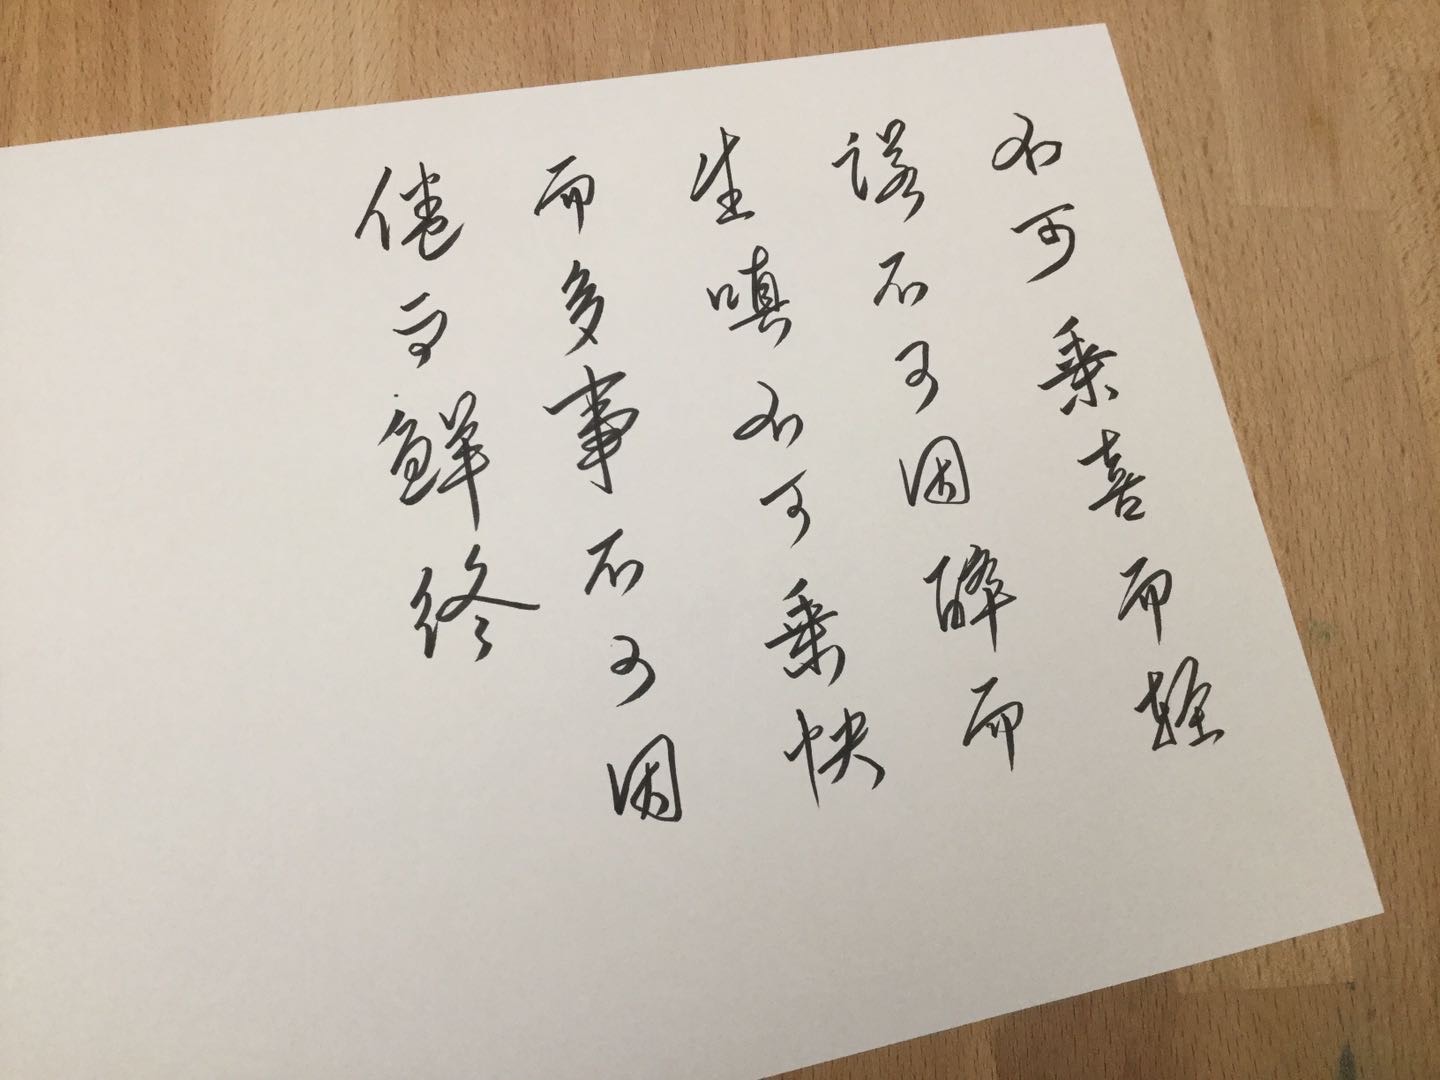 不可乘喜而轻
诺不可因醉而
生嗔不可乘快
而多事不可因
倦而鲜终